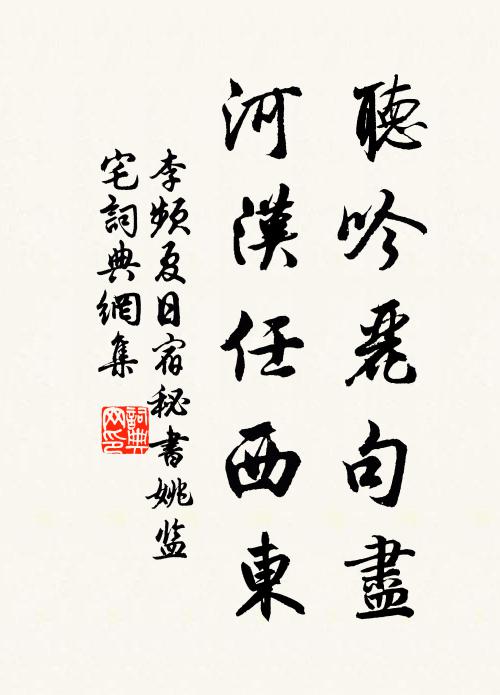 聽吟麗句盡
河漢任西東
李頻夏日宿秘書姚监
宅詞典網集
詞典网印